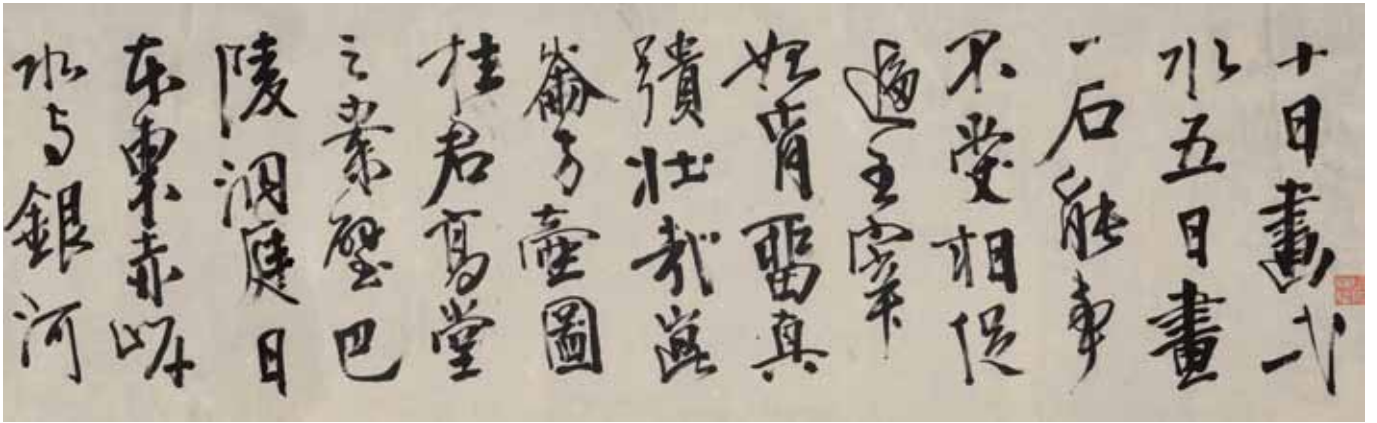 十日畫弌
水五日畫
一石能事
不受相促
逼王宰
始肯留真
蹟壯哉崑
崙方壺圖
挂君高堂
之素壁巴
陵洞庭日
本東赤岸
水与銀河